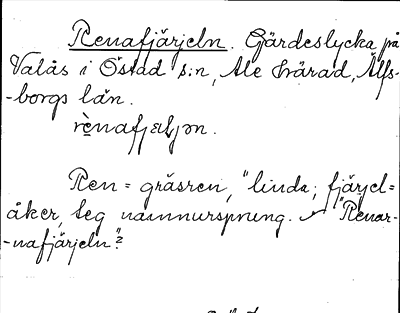 Renafjärjeln. Gärdeslycka på
Valås i Östad s:n, Ale härad, Älfs-
-borgs län.
rènafjæljən.
Ren = gräsren, "linda; fjärjel=
åker, teg namnursprung. "Renar-
-nafjärjeln"?